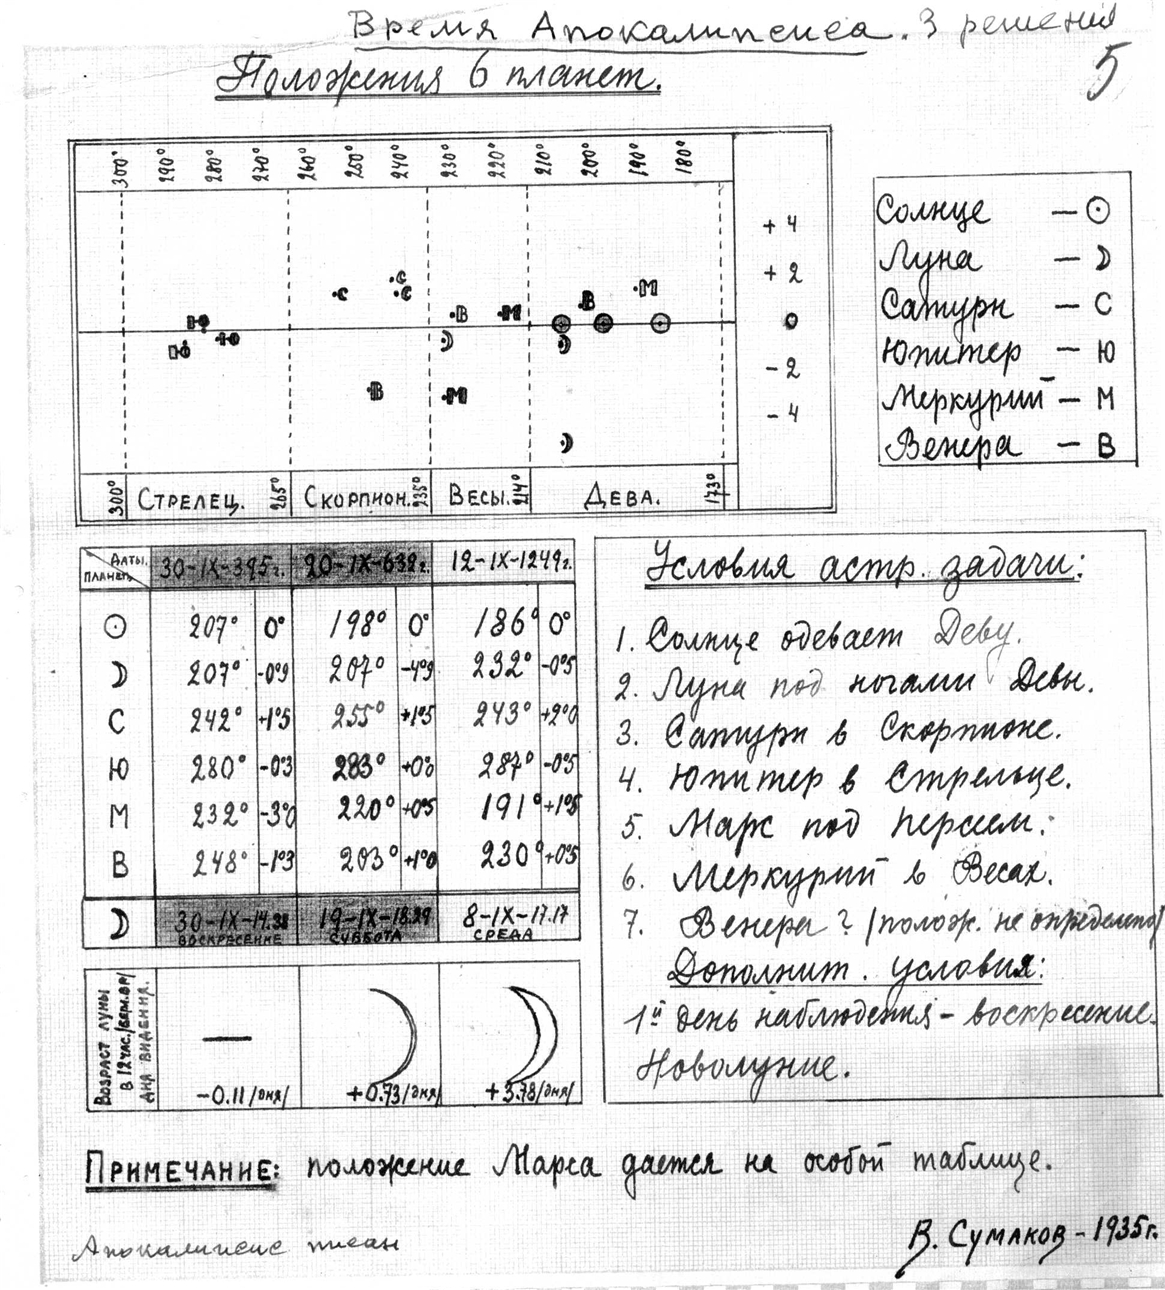 Время Апокалипсиса. 3 решения
Положения 6 планет.
5
300° 290° 280° 270° 260° 250° 240° 230° 220° 210° 200° 190° 180°
+4
+2
0
-2
-4
Ю Ю Ю С С С В В В М М М
300° Стрелец. 265° Скорпион. 235° Весы. 214° Дева. 173°
Солнце — ☉
Луна — ☽
Сатурн — С
Юпитер — Ю
Меркурий — М
Венера — В
Даты. Планеты 30-IX-395г. 20-IX-632г. 12-IX-1249г.
☉ 207° 0° 198° 0° 186° 0°
☽ 207° -0°9 207° -4°9 232° -0°5
С 242° +1°5 255° +1°5 243° +2°0
Ю 280° -0°3 283° +0° 287° -0°5
М 232° -3°0 220° +0°5 191° +1°5
В 248° -1°3 203° +1°0 230° +0°5
☽ 30-IX-14.38 воскресение 19-IX-18.29 суббота 8-IX-17.17 среда
Возраст луны в 12 час. дня видения.
-0.11/дня/ +0.73/дня/ +3.78/дня/
Условия астр. задачи:
1. Солнце одевает Деву.
2. Луна под ногами Девы.
3. Сатурн в Скорпионе.
4. Юпитер в Стрельце.
5. Марс под Персеем.
6. Меркурий в Весах.
7. Венера ? /полож. не определено/
Дополнит. условия:
1й день наблюдения - воскресение.
Новолуние.
Примечание: положение Марса дается на особой таблице.
Апокалипсис писан
В. Сумаков - 1935г.